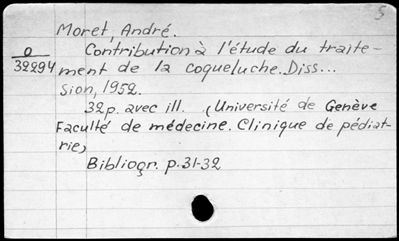 5
Moret, André.
O
32294
Contribution à l'étude du traite-
ment de la coqueluche. Diss...
Sion, 1952.
32p. avec ill. (Université de Genève
Faculté de médecine. Clinique de pédiat-
rie)
Bibliogr. p.31-32